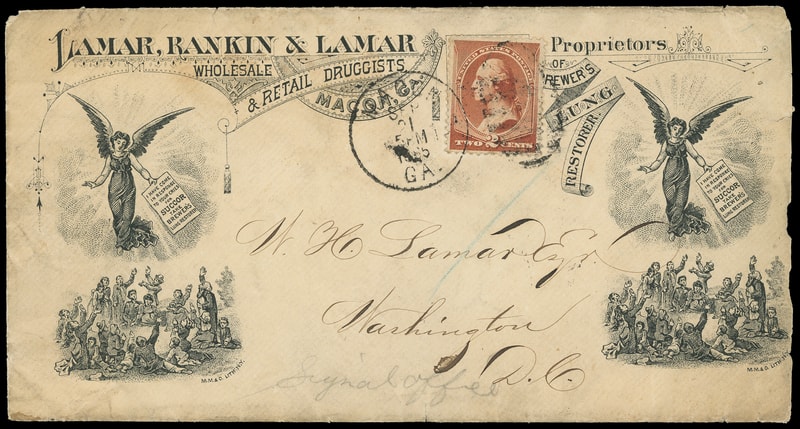 LAMAR, RANKIN & LAMAR
WHOLESALE
& RETAIL DRUGGISTS
MACON, GA.
Proprietors
OF
BREWER'S
LUNG
RESTORER
UNITED STATES POSTAGE
TWO CENTS
21
GA.
I HAVE COME
IN RESPONSE
TO YOUR CRIES
FOR
SUCCOR
TAKE
BREWERS
LUNG RESTORER
I HAVE COME
IN RESPONSE
TO YOUR CRIES
FOR
SUCCOR
TAKE
BREWERS
LUNG RESTORER
W. H. Lamar Esqr.
Washington
D.C.
Signal office
M.M.& O. LITH. N.Y.
M.M.& O. LITH. N.Y.